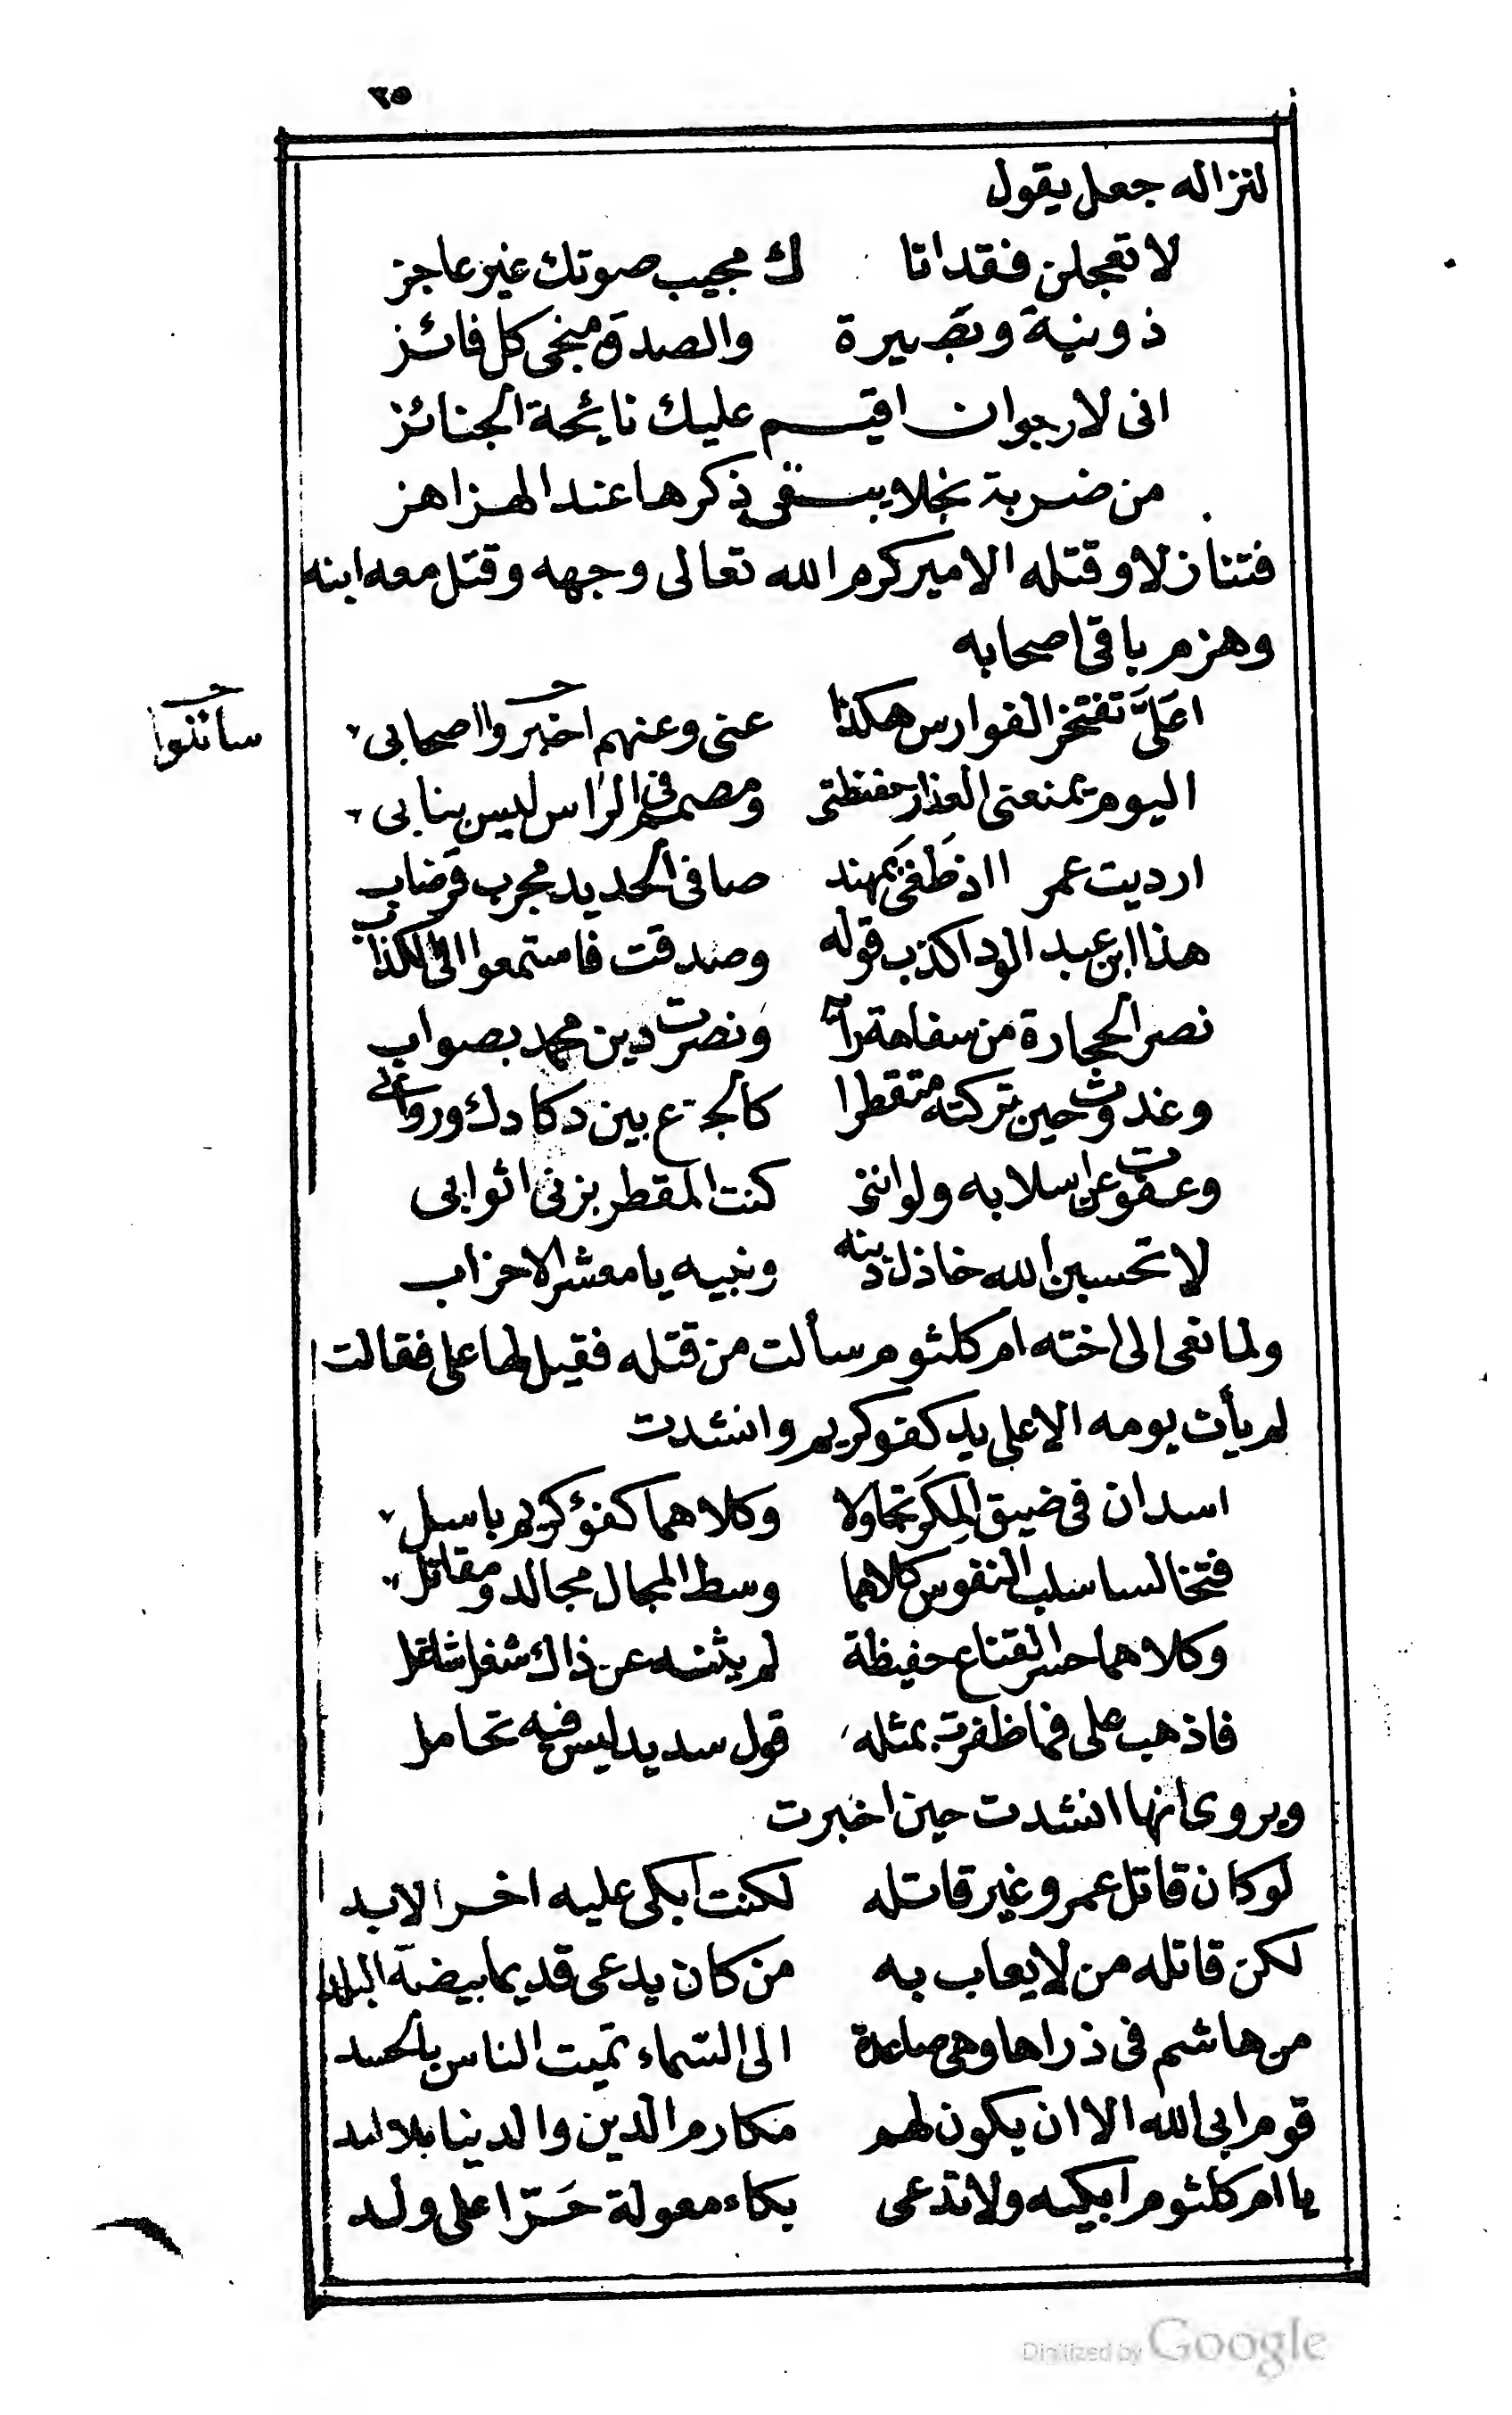 ٢٥
لنزاله جعل يقول
لا تعجلن فقد اتا ك مجيب صوتك غير عاجز
ذو نية وبصيرة والصدق منجى كل فائز
انى لارجو ان اقيم عليك نائحة الجنائز
من ضربة نجلا يبقى ذكرها عند الهزاهز
فتنازلا وقتله الامير كرم الله تعالى وجهه وقتل معه ابنه
وهزم باقى اصحابه
اعَلىَّ تفتخر الفوارس هكذا عنى وعنهم اخبروا اصحابى
سائلوا
اليوم تمنعنى الفرار حفيظتى ومصمم فى الراس ليس بنابى
ارديت عمرا اذ طَغَى بمهند صافى الحديد مجرب قرضاب
هذا ابن عبد الود اكذب قوله وصدقت فاستمعوا الى الكذاب
نصر الحجارة من سفاهة رأيه ونصرت دين محمد بصواب
وغدوت حين تركته متقطرا كالجذع بين دكادك وروابى
وعفوت عن اسلابه ولو اننى كنت المقطر بزنى اثوابى
لا تحسبن الله خاذل دينه ونبيه يا معشر الاحزاب
ولما نعى الى اخته ام كلثوم سألت من قتله فقيل لها على فقالت
لم يأت يومه الا على يد كفو كريم وانشدت
اسدان فى ضيق المِكَر تجاولا وكلاهما كفؤ كريم باسل
فتخالسا سلب النفوس كلاهما وسط المجال مجالد ومقاتل
وكلاهما حسر القناع حفيظة لم يثنه عن ذاك شغل شاغل
فاذهب على فما ظفرت بمثله قول سديد ليس فيه تحامل
ويروى انها انشدت حين اخبرت
لو كان قاتل عمرو غير قاتله لكنت ابكى عليه اخر الابد
لكن قاتله من لا يعاب به من كان يدعى قديما بيضة البلد
من هاشم فى ذراها وهى صاعدة الى السماء تميت الناس بالحسد
قوم ابى الله الا ان يكون لهم مكارم الدين والدنيا بلا لدد
يا ام كلثوم ابكيه ولا تدعى بكاء معولة حَرّا على ولد
Digitized by Google